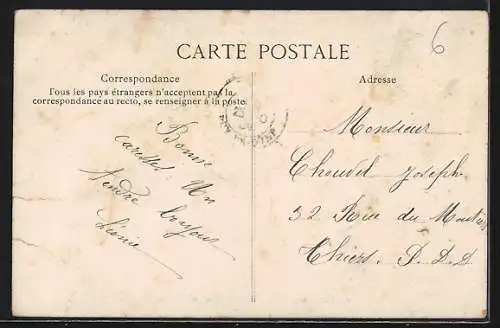 6
CARTE POSTALE
Correspondance
Tous les pays étrangers n'acceptent pas la
correspondance au recto, se renseigner à la poste.
Adresse
Bonne
caresses. Un
tendre
Monsieur
Joseph
32 Rue du Moutier
Thiers. P. D. D